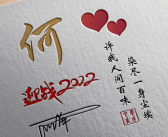 何
迎战2022
染尽一身尘埃
许我人间百味